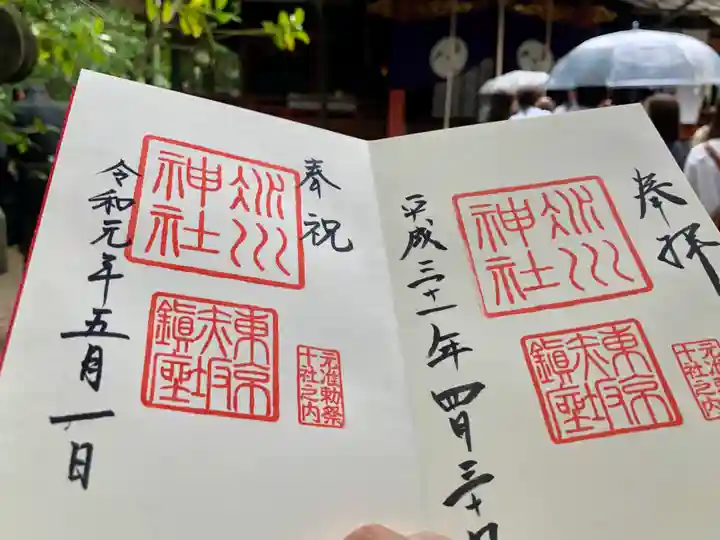 奉拝
氷川神社
東京赤坂鎮座
元准勅祭十社之内
平成三十一年四月三十日
奉祝
氷川神社
東京赤坂鎮座
元准勅祭十社之内
令和元年五月一日